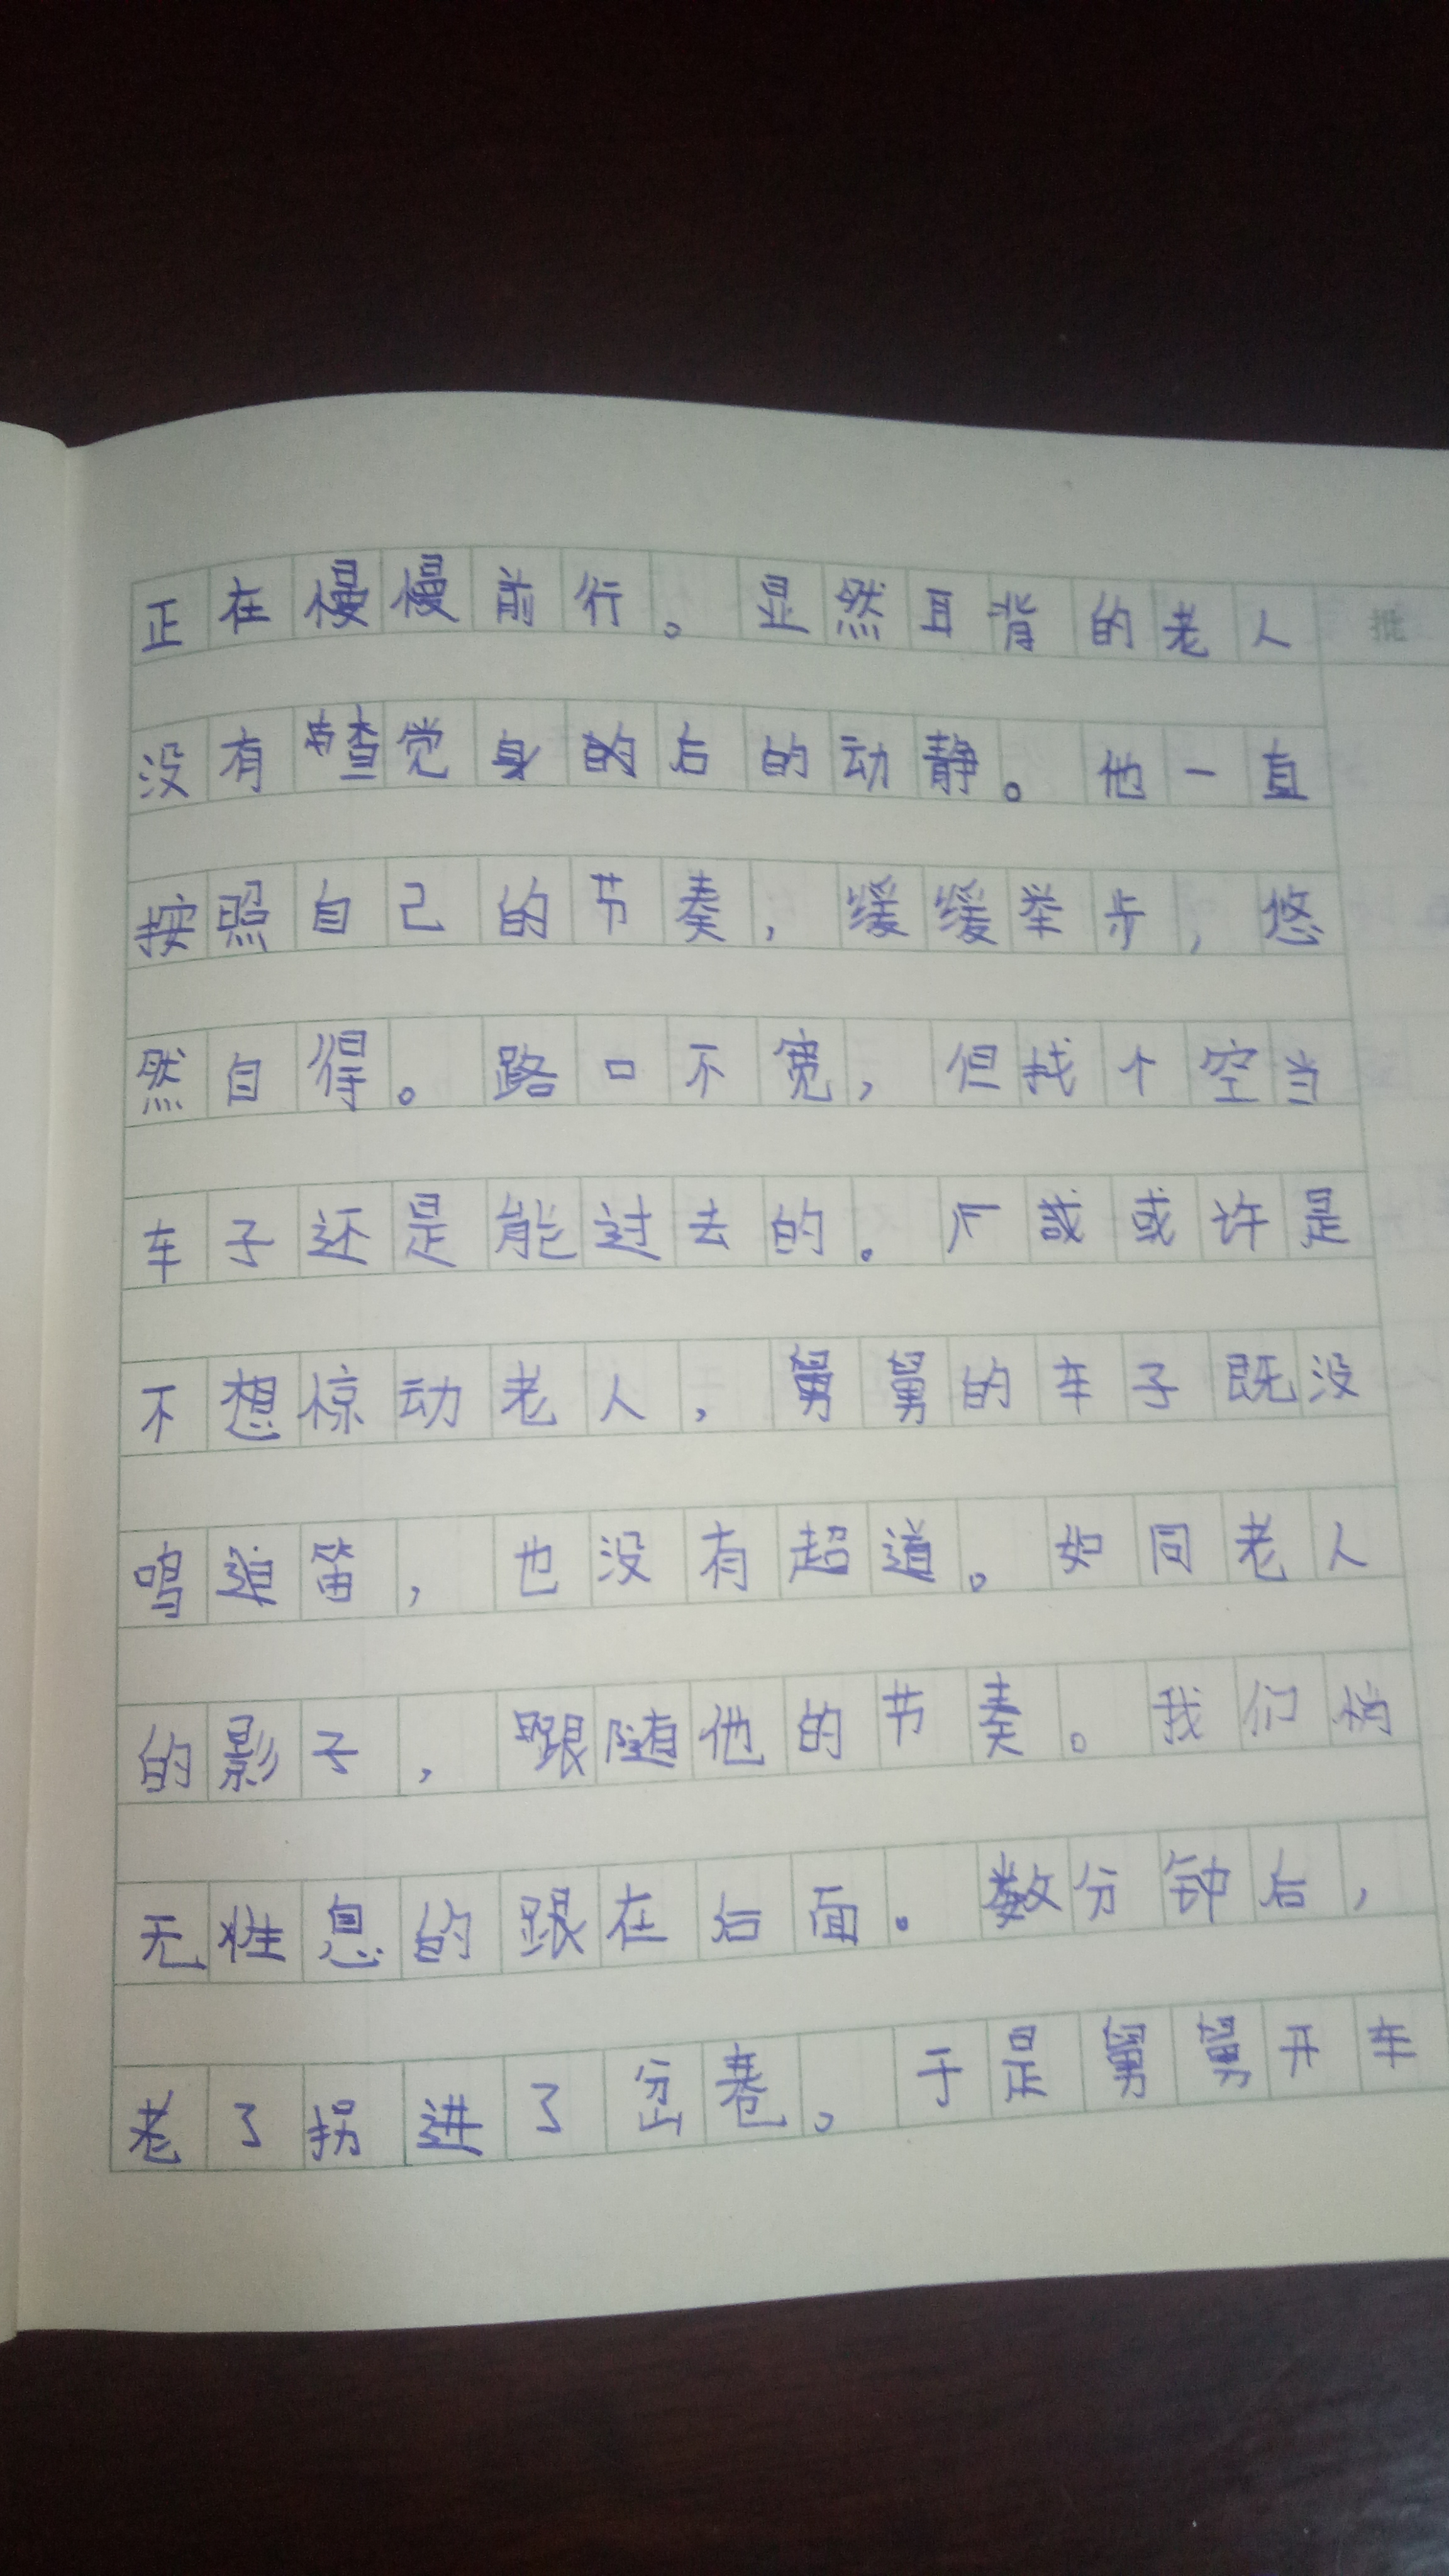 正在慢慢前行。显然耳背的老人 批
没有觉身的后的动静。他一直
按照自己的节奏，缓缓举步，悠
然自得。路口不宽，但找个空当
车子还是能过去的。或许是
不想惊动老人，舅舅的车子既没
鸣道笛，也没有超道。如同老人
的影子，跟随他的节奏。我们悄
无息的跟在后面。数分钟后，
老了拐进了岔巷。于是舅舅开车